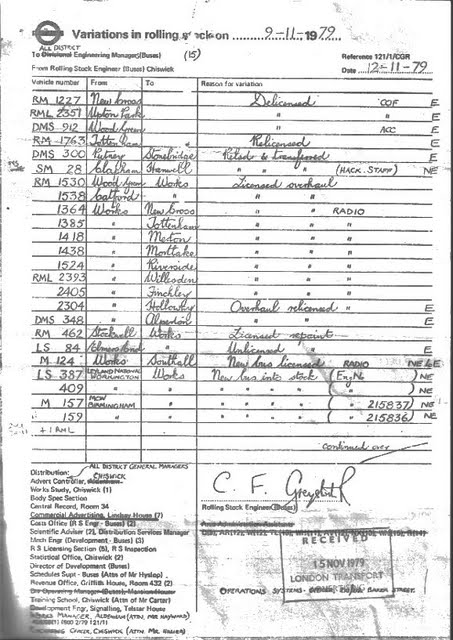 Variations in rolling stock on 9-11-1979
ALL DISTRICT
To Divisional Engineering Manager (Buses) (15)
Reference 121/1/CGR
From Rolling Stock Engineer (Buses) Chiswick
Date 12-11-79
Vehicle number From To Reason for variation
RM 1227 New Cross Delicensed COF E
RML 2351 Upton Park " " " E
DMS 912 Wood Green " ACC E
RM 1763 Tottenham Relicensed E
DMS 300 Putney Stonebridge Refsd & transferred E
SM 28 Clapham Hanwell " " (HACK. STAFF) NE
RM 1530 Wood Green Works Licensed overhaul
1538 Catford " " "
1364 Works New Cross " " RADIO
1385 " Tottenham " " "
1418 " Merton " " "
1438 " Mortlake " " "
1524 " Riverside " " "
RML 2393 " Willesden " " "
2405 " Finchley " " "
2304 " Holloway Overhaul relicensed " E
DMS 348 " Alperton " " " E
RM 462 Stockwell Works Licensed repaint
LS 84 Unlicensed " E
M 124 Works Southall New bus licensed RADIO NE & E
LS 387 LEYLAND NATIONAL WORKINGTON Works New bus into stock (Eng No ) NE
409 " " " " " " ( ) NE
M 157 MCW BIRMINGHAM " " " " " (215837) NE
159 " " " " " " (215836) NE
+ 1 RML
continued over
Distribution: ALL DISTRICT GENERAL MANAGERS
CHISWICK
Advert Controller,
Works Study, Chiswick (1)
Body Spec Section
Central Record, 34
Commercial Advertising, Lindsay House (7)
Costs Office (R S Engr - Buses) (2)
Scientific Adviser (2), Distribution Services Manager
Mech Engr (Development - Buses) (3)
R S Licensing Section (5), R S Inspection
Statistical Office, Chiswick (2)
Director of Development (Buses)
Schedules Supt - Buses (Attn of Mr Hyslop)
Revenue Office, Griffith House, Room 432 (2)
Training School, Chiswick (Attn of Mr Carter)
Development Engr, Signalling, Telstar House
WORKS MANAGER, ALDENHAM (ATTN: MR HAYWARD)
CHISWICK (ATTN MR
Rolling Stock Engineer (Buses)
RECEIVED
15 NOV 1979
LONDON TRANSPORT
OPERATIONS BAKER STREET.